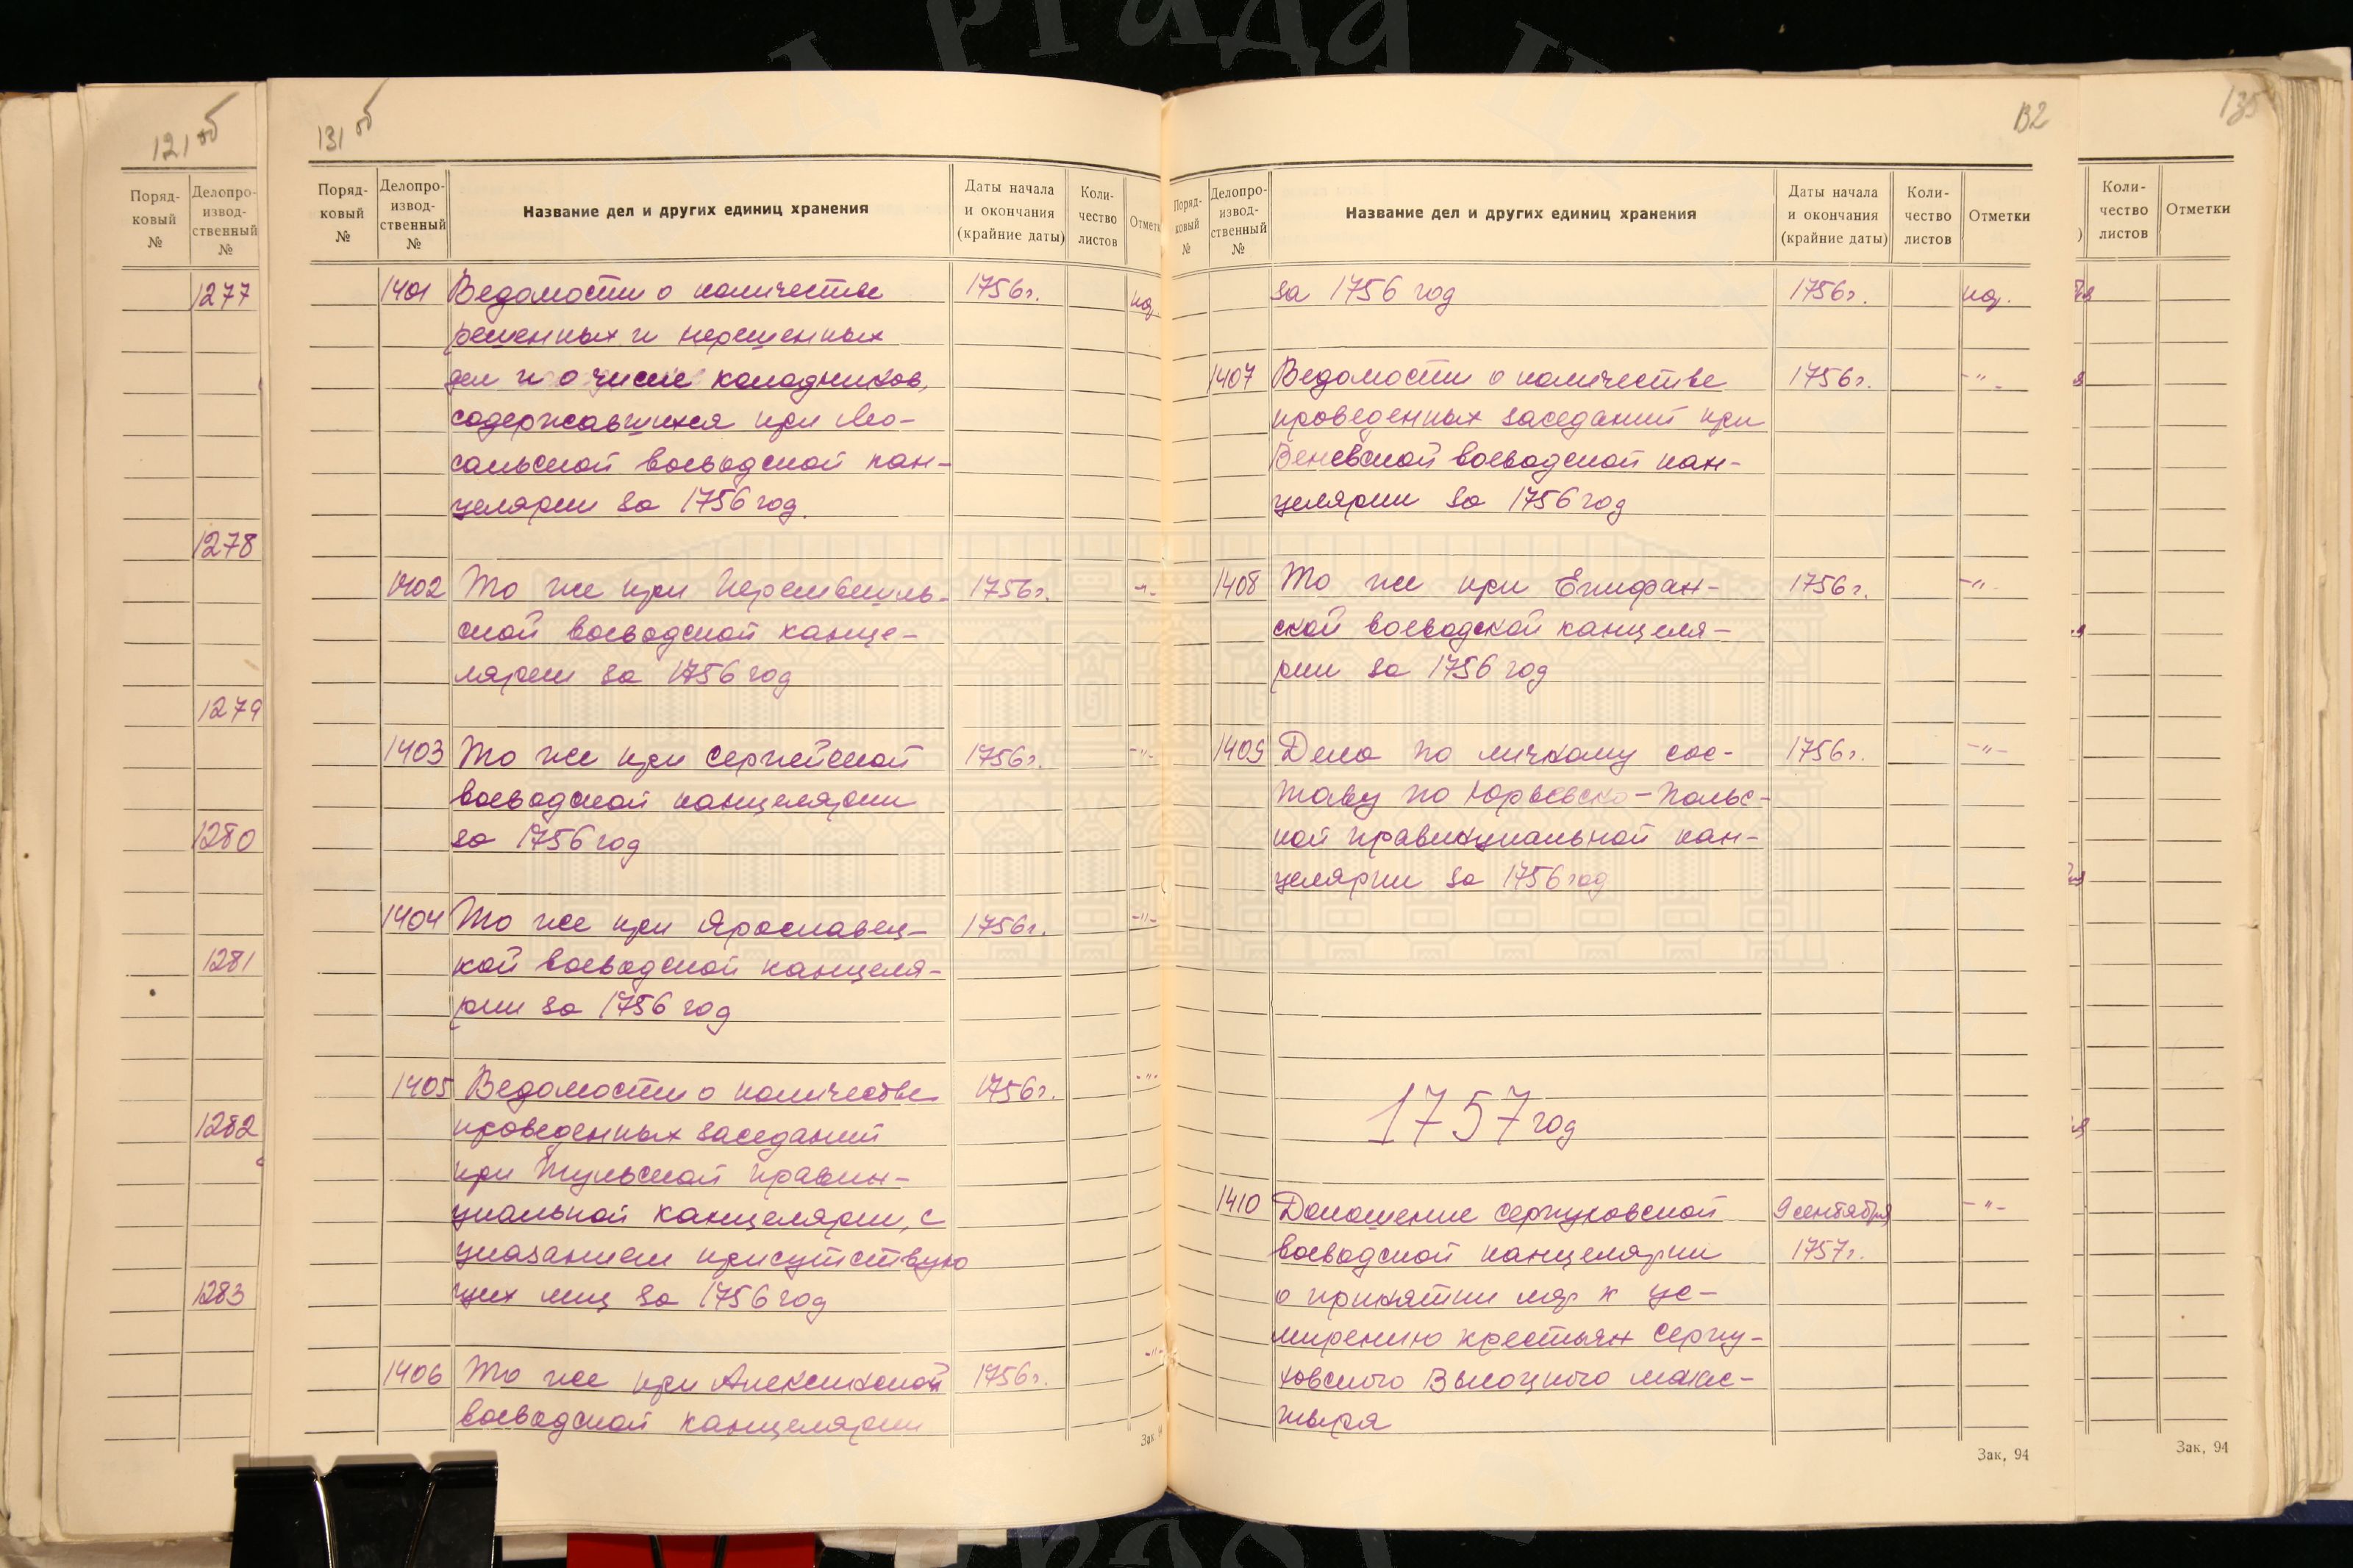 121 об
Поряд-
ковый
№
Делопро-
извод-
ственный
№
1277
1278
1279
1280
1281
1282
1283
131 об
Поряд-
ковый
№
Делопро-
извод-
ственный
№
Название дел и других единиц хранения
Даты начала
и окончания
(крайние даты)
Коли-
чество
листов
1401 Ведомости о количестве 1756 г.
решенных и нерешенных
дел и о числе колодников,
содержавшихся при Мо-
сальской воеводской кан-
целярии за 1756 год.
1402 То же при Перемышль- 1756 г. -"-
ской воеводской канце-
лярии за 1756 год
1403 То же при Серпейской 1756 г. -"-
воеводской канцелярии
за 1756 год
1404 То же при Ярославец- 1756 г. -"-
кой воеводской канцеля-
рии за 1756 год
1405 Ведомости о количестве 1756 г. -"-
проведенных заседаний
при Тульской провин-
циальной канцелярии, с
указанием присутствую
щих лиц за 1756 год
1406 То же при Алексинской 1756 г. -"-
воеводской канцелярии
Зак. 94
132
Поряд-
ковый
№
Делопро-
извод-
ственный
№
Название дел и других единиц хранения
Даты начала
и окончания
(крайние даты)
Коли-
чество
листов
Отметки
за 1756 год 1756 г.
1407 Ведомости о количестве 1756 г. -"-
проведенных заседаний при
Веневской воеводской кан-
целярии за 1756 год
1408 То же при Епифан- 1756 г. -"-
ской воеводской канцеля-
рии за 1756 год
1409 Дело по личному сос- 1756 г. -"-
таву по Юрьевско-Польс-
кой провинциальной кан-
целярии за 1756 год
1757 год
1410 Доношение серпуховской 9 сентября -"-
воеводской канцелярии 1757 г.
о принятии мер к ус-
мирению крестьян Серпу-
ховского Высоцкого монас-
тыря
Зак, 94
135
Коли-
чество
листов
Отметки
Зак, 94